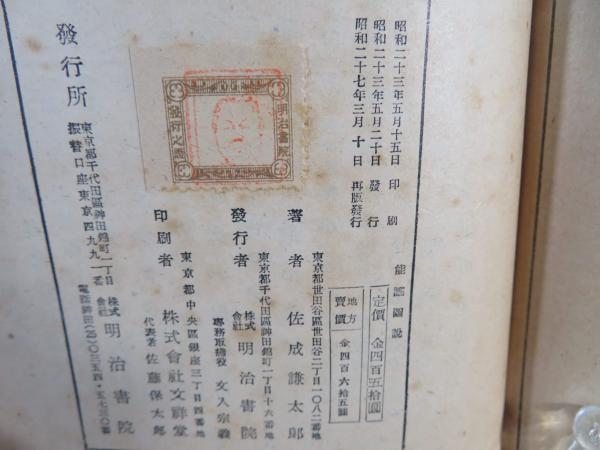 昭和二十三年五月十五日 印刷
昭和二十三年五月二十日 發行
昭和二十七年三月十日 再版發行
能謠圖説
定價 金四百五拾圓
地方賣價 金四百六拾五圓
東京都世田谷區世田谷二丁目一〇八二番地
著者 佐成謙太郎
東京都千代田區神田錦町一丁目十六番地
發行者 株式會社 明治書院
專務取締役 文入宗義
東京都中央區銀座三丁目四番地
印刷者 株式會社文祥堂
代表者 佐藤保太郎
明治書院
發行之證
發行所
東京都千代田區神田錦町一丁目
振替口座東京四九九一番
株式會社 明治書院